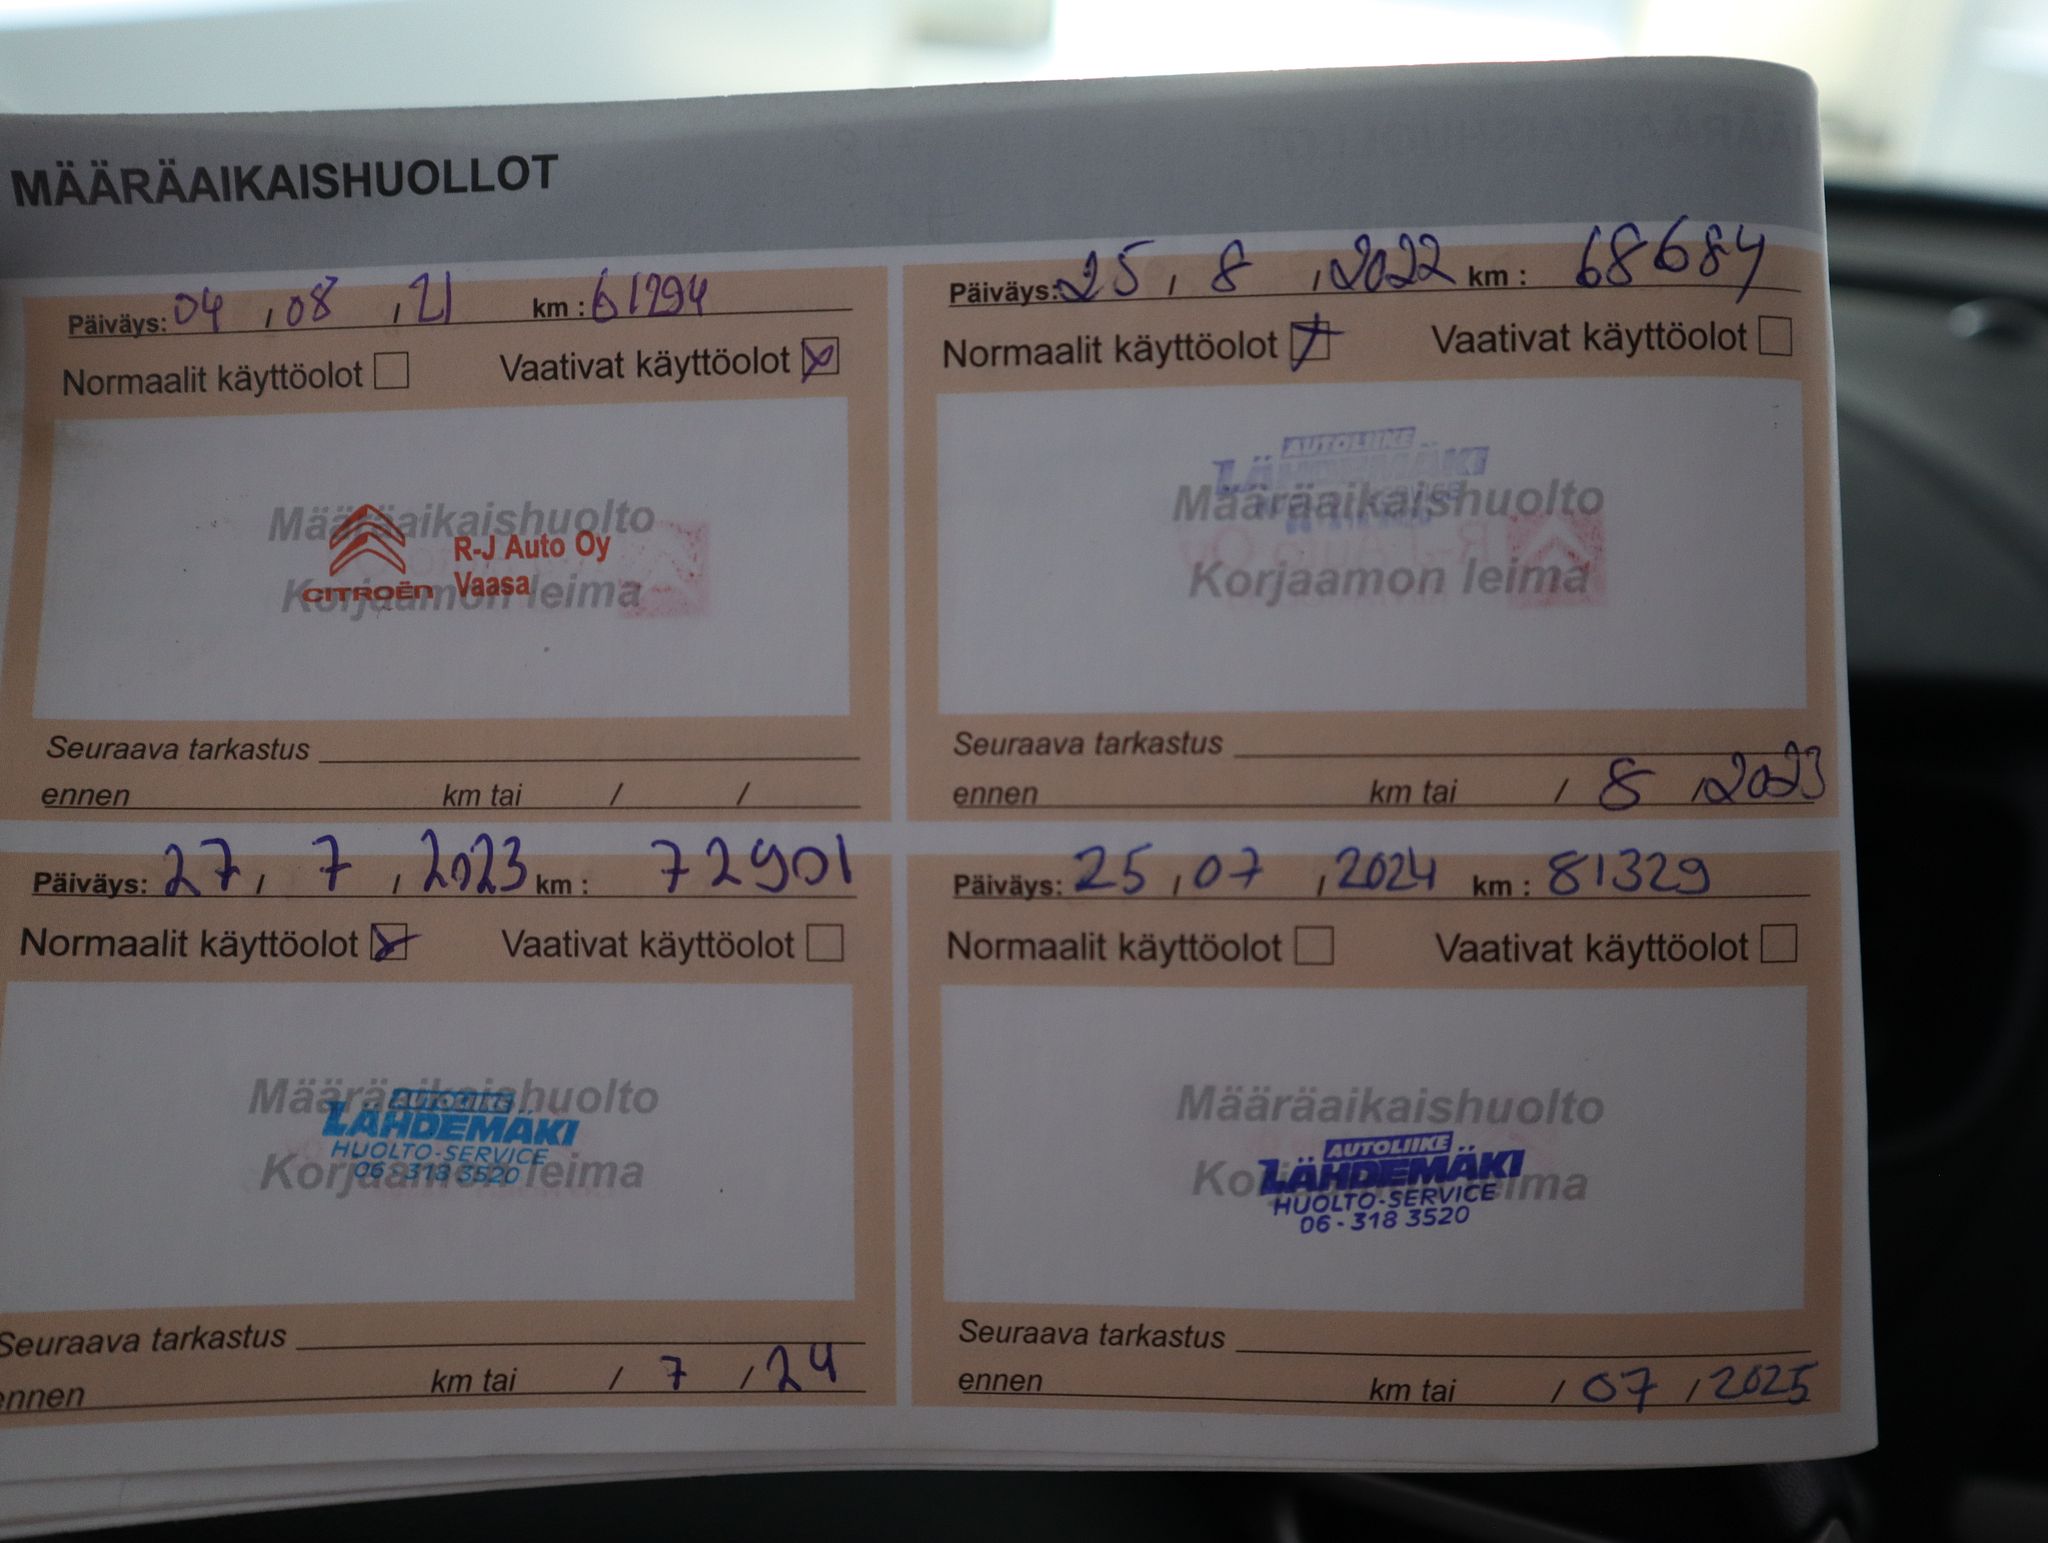 MÄÄRÄAIKAISHUOLLOT
Päiväys: 04 / 08 / 21 km : 61294
Normaalit käyttöolot Vaativat käyttöolot x
Määräaikaishuolto
R-J Auto Oy
Vaasa
CITROËN
Korjaamon leima
Seuraava tarkastus
ennen km tai / /
Päiväys: 25 / 8 / 2022 km : 68684
Normaalit käyttöolot x Vaativat käyttöolot
AUTOLIIKE
LÄHDEMÄKI
Määräaikaishuolto
Korjaamon leima
Seuraava tarkastus
ennen km tai / 8 / 2023
Päiväys: 27 / 7 / 2023 km : 72901
Normaalit käyttöolot x Vaativat käyttöolot
Määräaikaishuolto
AUTOLIIKE
LÄHDEMÄKI
HUOLTO-SERVICE
06 - 318 3520
Korjaamon leima
Seuraava tarkastus
ennen km tai / 7 / 24
Päiväys: 25 / 07 / 2024 km : 81329
Normaalit käyttöolot Vaativat käyttöolot
Määräaikaishuolto
AUTOLIIKE
LÄHDEMÄKI
HUOLTO-SERVICE
06 - 318 3520
Korjaamon leima
Seuraava tarkastus
ennen km tai / 07 / 2025